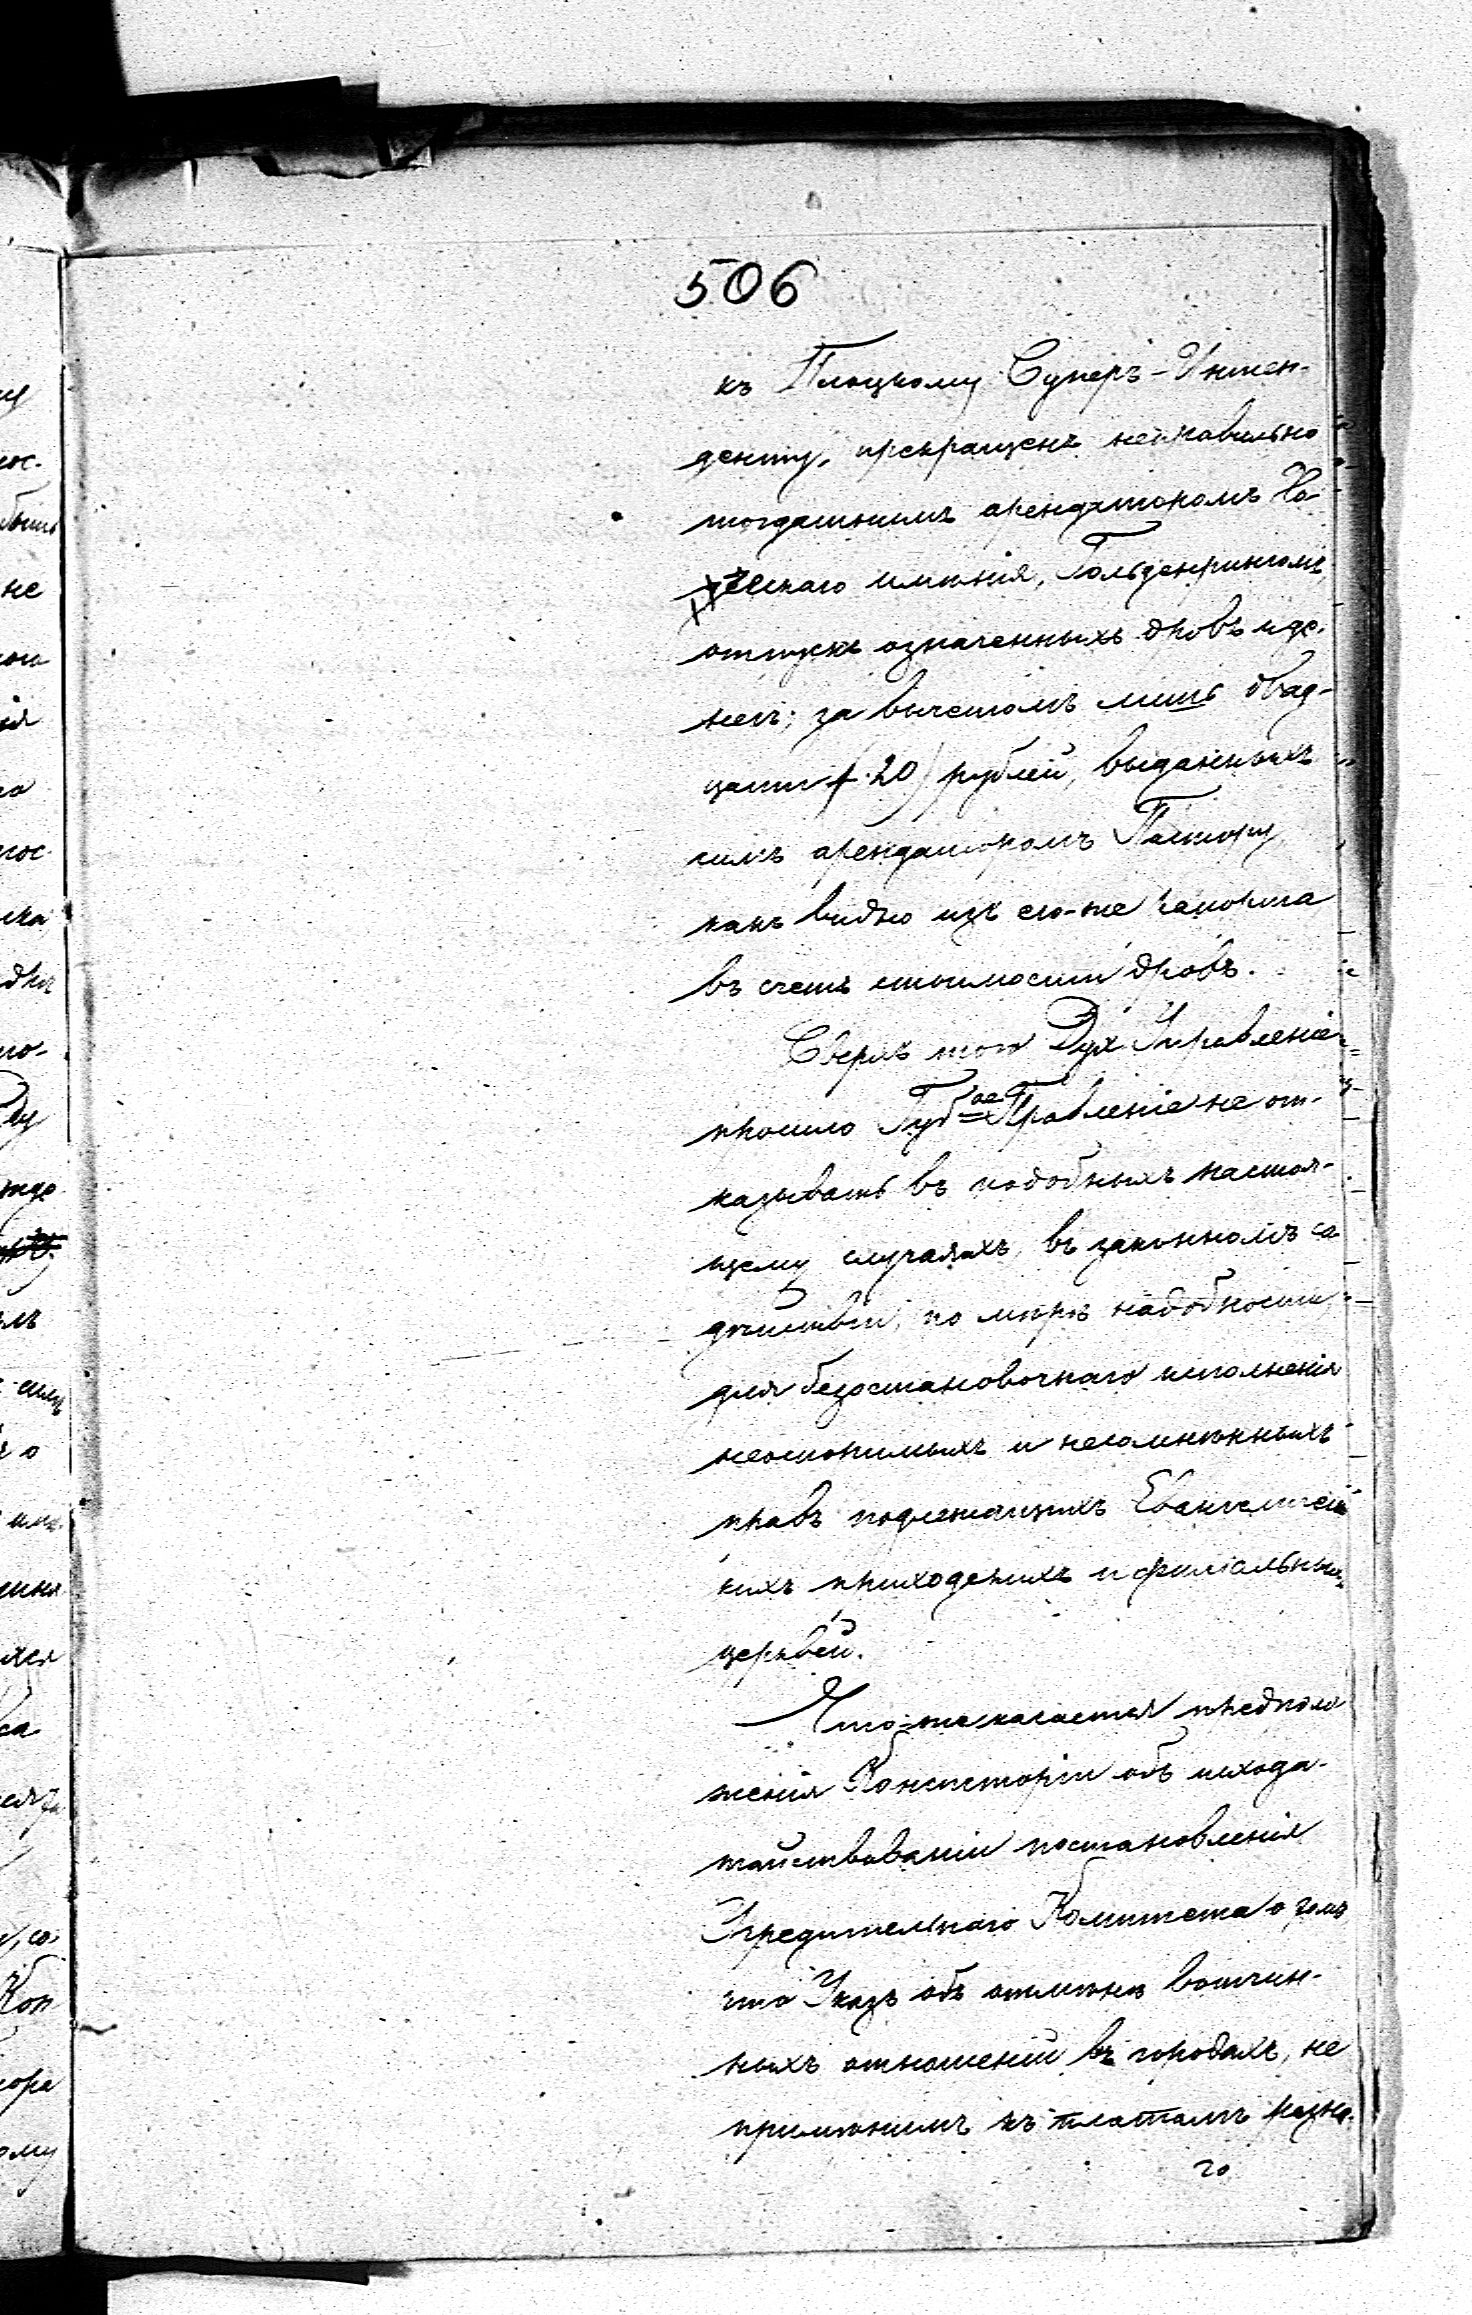 506
къ Плоцкому Суперъ-Интен-
денту, прекращенъ неправильно
тогдашнимъ арендаторомъ
имѣнія, Гольденрингомъ
отпускъ означенныхъ дровъ и де-
негъ; за вычетомъ лишь двад-
цати (20) рублей, выданныхъ
симъ арендаторомъ Пастору,
какъ видно изъ его-же рапорта
въ счетъ стоимости дровъ.
Сверхъ того Дух. Управленіе
просило Губ-ое Правленіе не от-
казывать въ подобныхъ настоя-
щему случаяхъ, въ законномъ со
дѣйствіи, по мѣрѣ надобности
для безостановочнаго исполненія
неоспоримыхъ и несомнѣнныхъ
правъ подлежащихъ Евангеличес
кихъ приходскихъ и филіальныхъ
церквей.
Что-же касается предполо
женія Консисторіи объ исхода-
тайствованіи постановленія
Учредительнаго Комитета о томъ
что Указъ объ отмѣнѣ вотчин-
ныхъ отношеній въ городахъ, не
примѣнимъ къ платамъ разна-
го